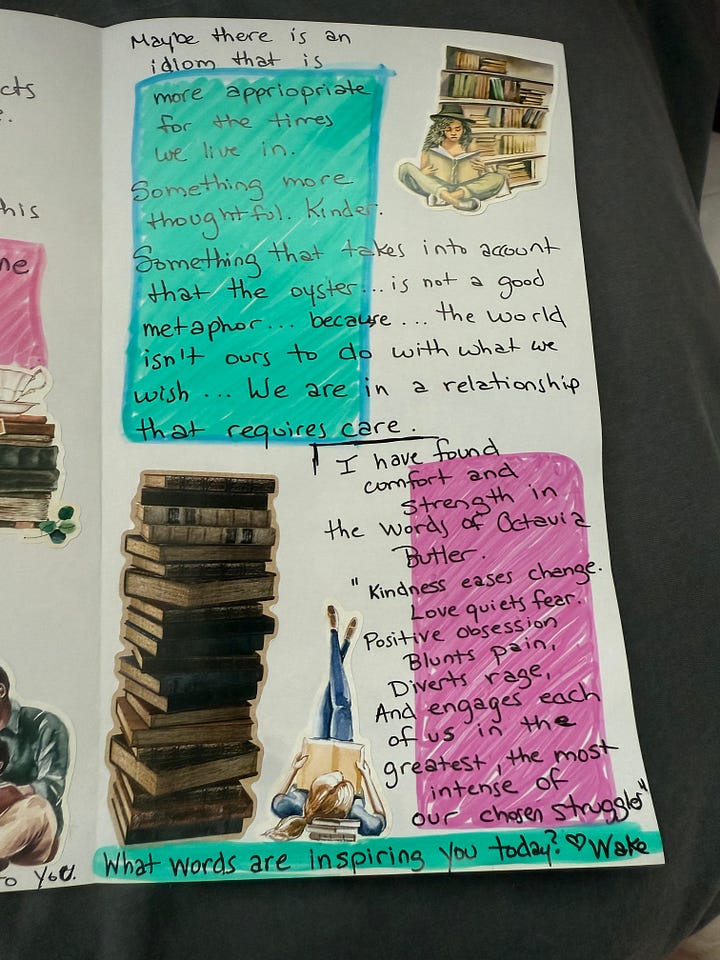 cts
.
his
ne
o you.
Maybe there is an
idiom that is
more appriopriate
for the times
we live in.
Something more
thoughtful. Kinder.
Something that takes into account
that the oyster... is not a good
metaphor... because... the world
isn't ours to do with what we
wish... We are in a relationship
that requires care.
I have found
comfort and
strength in
the words of Octavia
Butler.
"Kindness eases change.
Love quiets fear.
Positive obsession
Blunts pain,
Diverts rage,
And engages each
of us in the
greatest, the most
intense of
our chosen struggles"
What words are inspiring you today? ♡ Wake